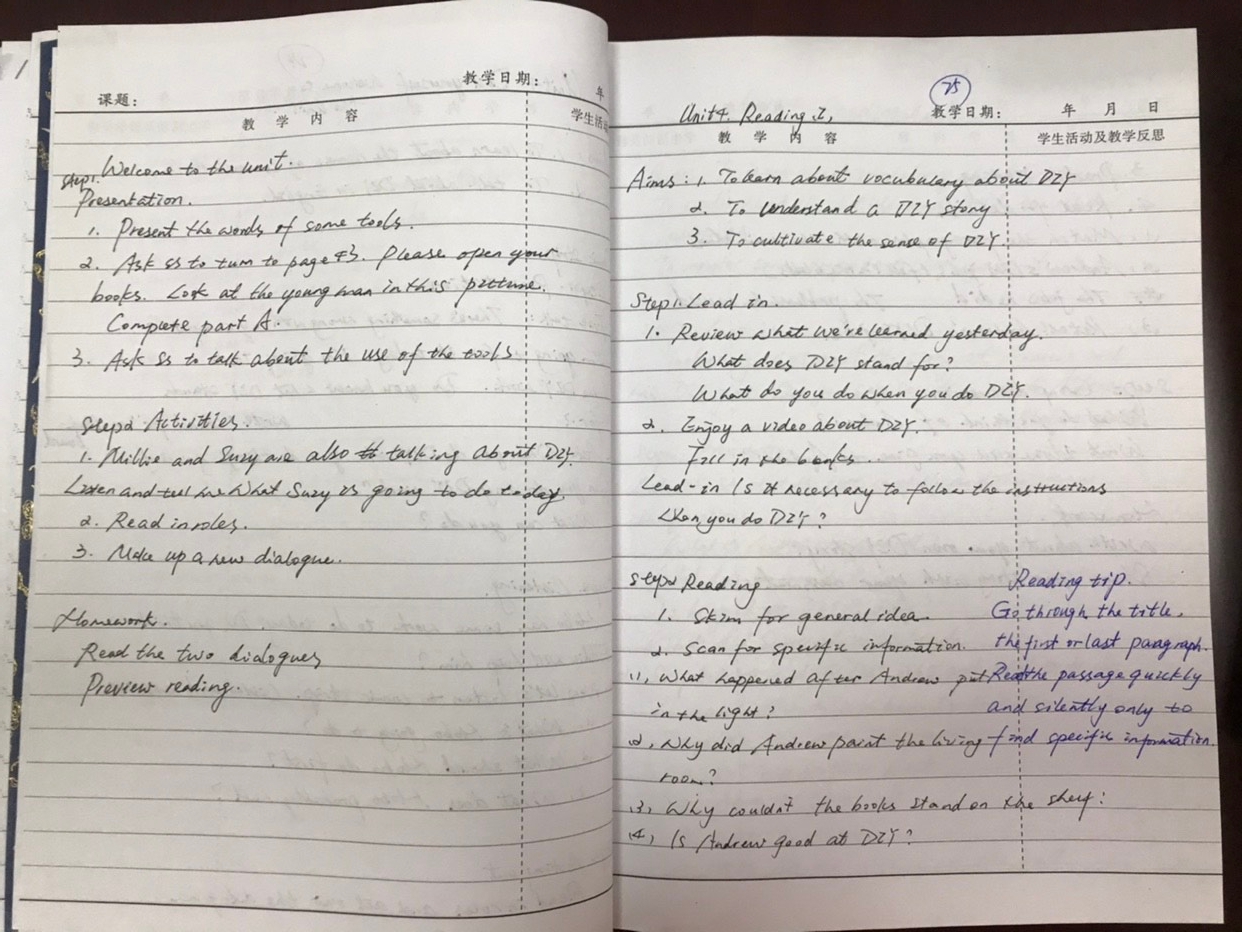 教学日期: 年
课题:
教 学 内 容 学生活动
Step1. Welcome to the unit.
Presentation.
1. Present the words of some tools.
2. Ask Ss to turn to page 43. Please open your
books. Look at the young man in this picture.
Complete part A.
3. Ask Ss to talk about the use of the tools
Step2 Activities.
1. Millie and Suzy are also talking about DIY.
Listen and tell me what Suzy is going to do today.
2. Read in roles.
3. Make up a new dialogue.
Homework.
Read the two dialogues
Preview reading.
75
Unit4. Reading I, 教学日期: 年 月 日
教 学 内 容 学生活动及教学反思
Aims: 1. To learn about vocubulary about DIY
2. To understand a DIY story
3. To cultivate the sense of DIY.
Step1. Lead in.
1. Review what we're learned yesterday.
What does DIY stand for?
What do you do when you do DIY.
2. Enjoy a video about DIY.
Fill in the banks.
Lead-in Is it necessary to follow the instructions
when you do DIY?
Step2 Reading
1. Skim for general idea.
2. Scan for specific information.
(1), What happened after Andrew put
in the light?
(2), Why did Andrew paint the living
room?
(3), Why couldn't the books stand on the shelf?
(4), Is Andrew good at DIY?
Reading tip.
Go through the title,
the first or last paragraph.
Read the passage quickly
and silently only to
find specific information.